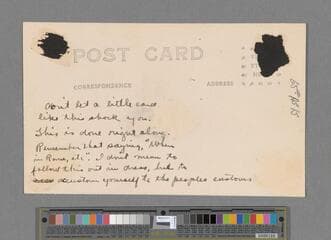 POST CARD
CORRESPONDENCE
ADDRESS
Don't let a little card
like this shock you.
This is done right along.
Remember that saying, "When
in Rome, etc". I don't mean to
follow this out in dress, but to
custom yourself to the peoples customs